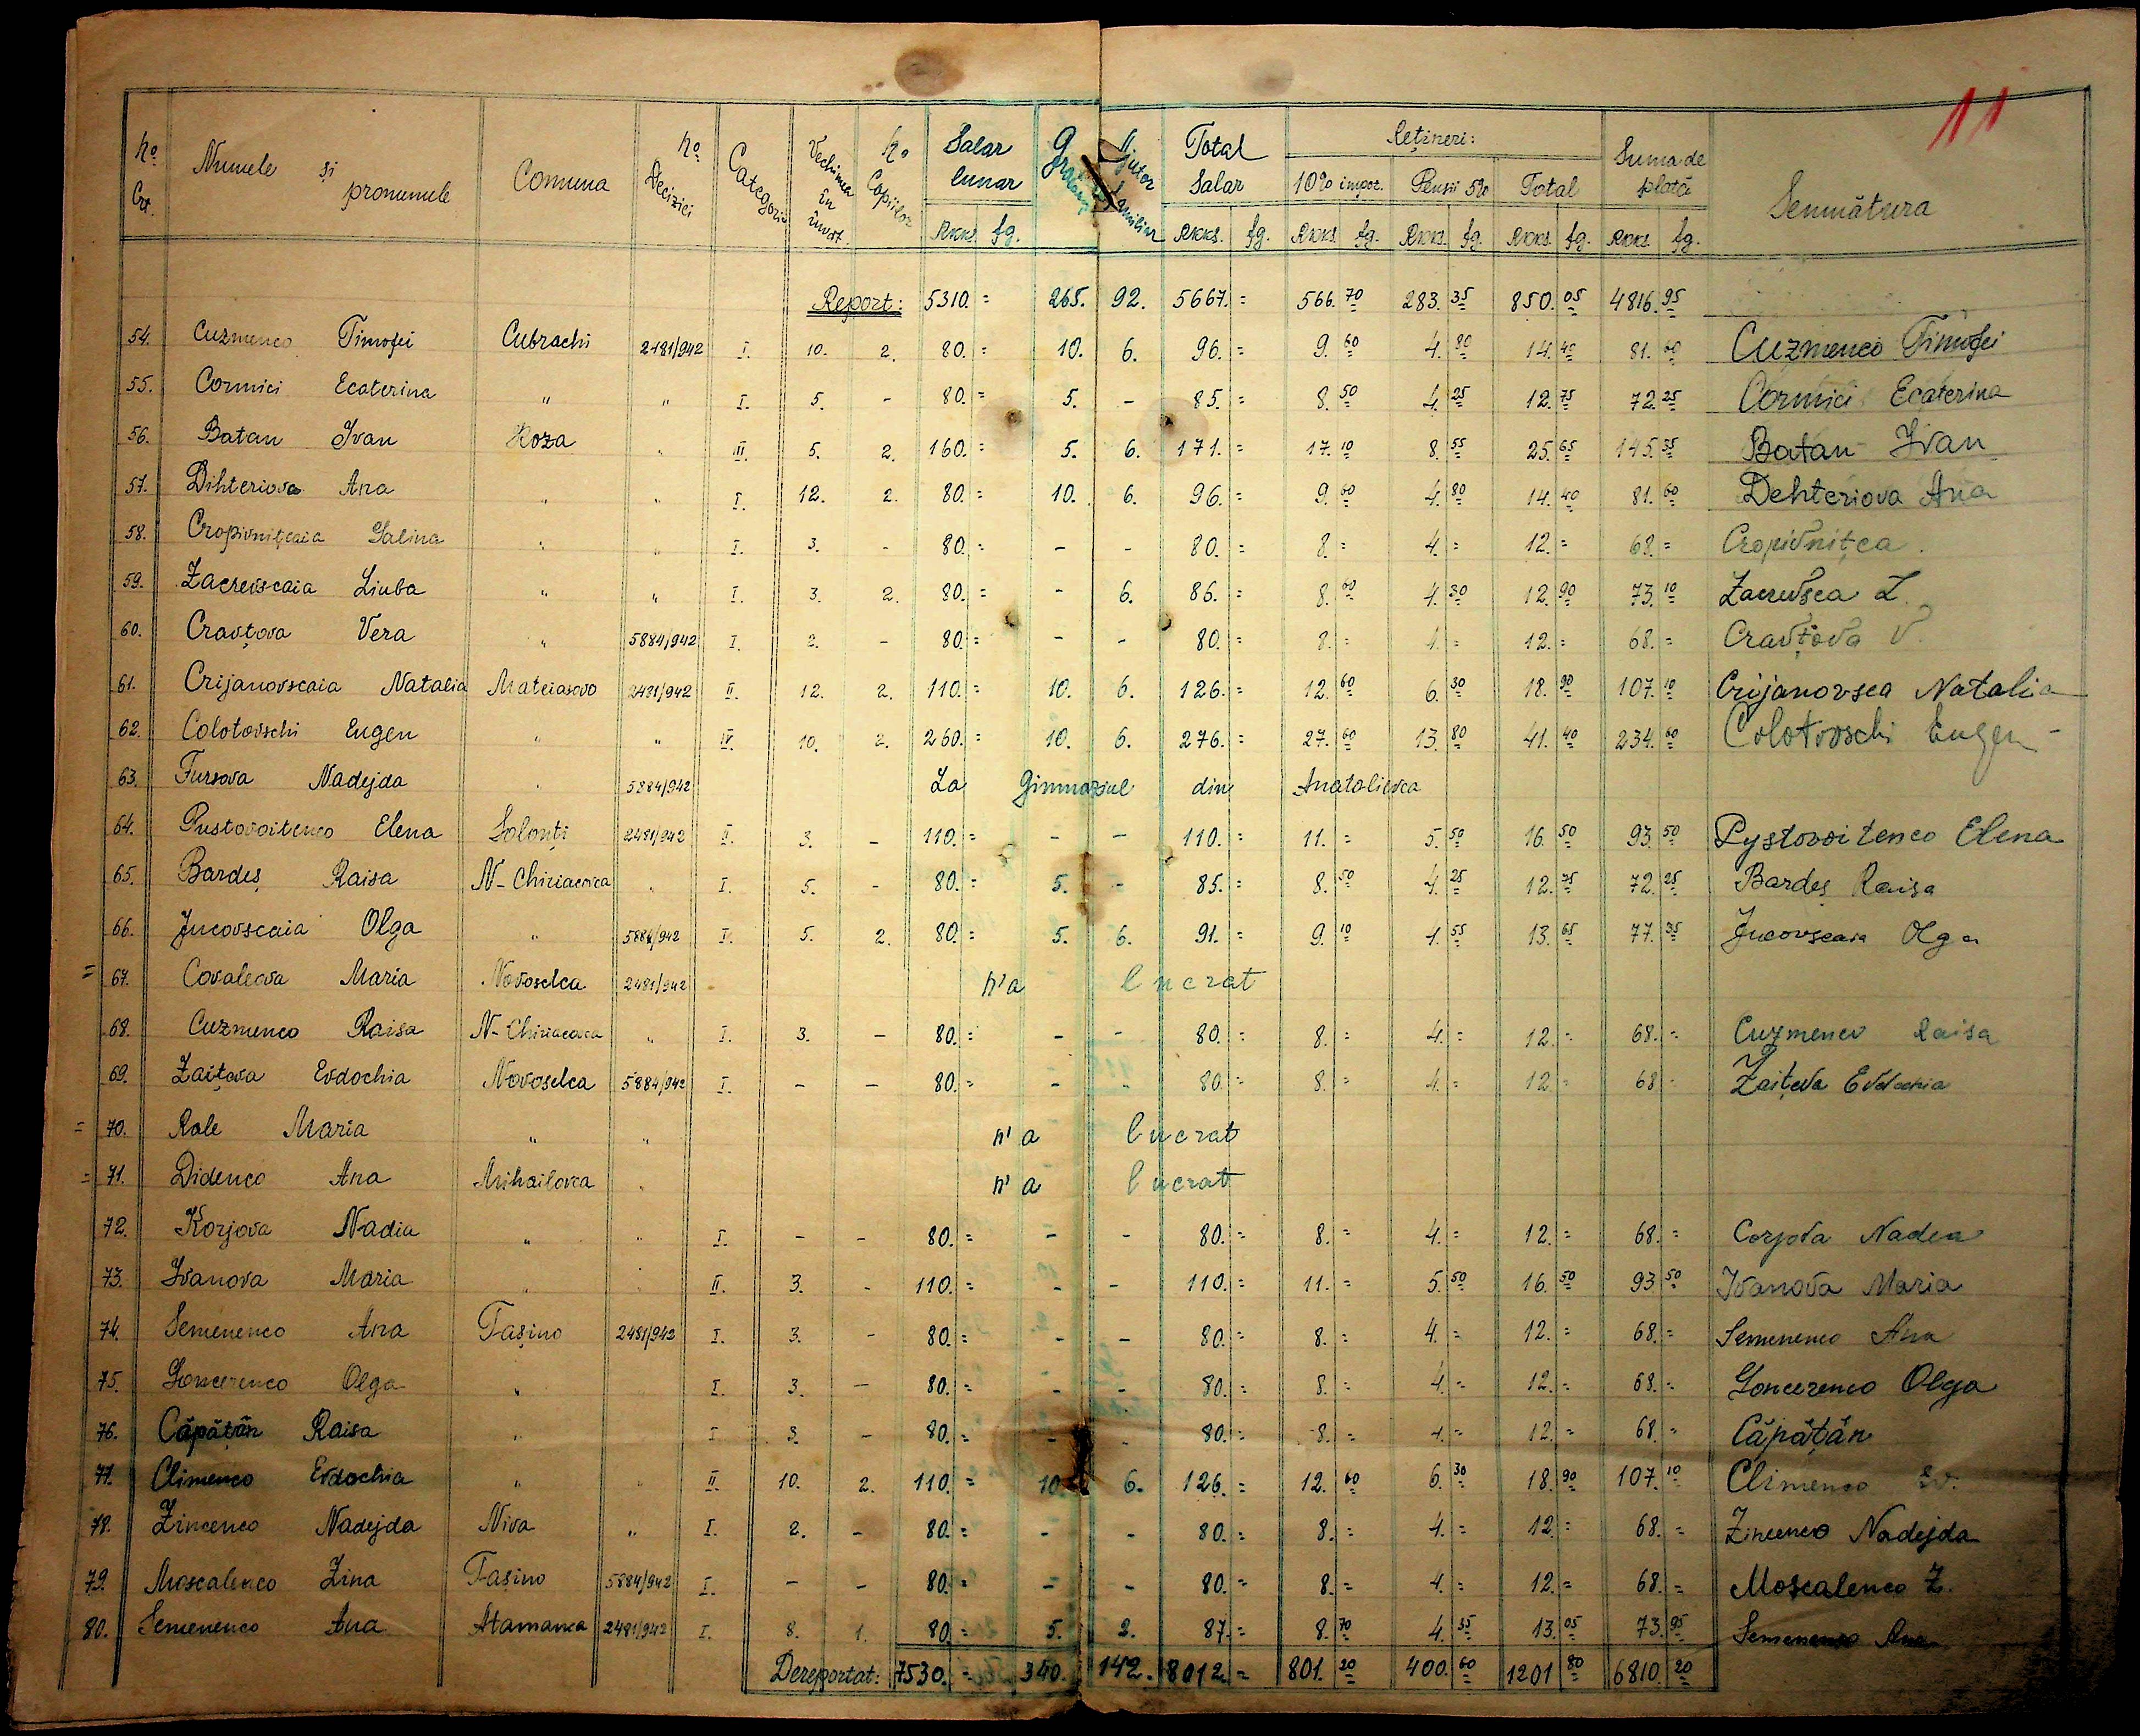 11
No Crt. Numele și pronumele Comuna No Deciziei Categoria Vechimea în învăț. No Copiilor Salar lunar Gradații Ajutor familiar Total Salar Rețineri: Suma de plată Semnătura
10% impoz. Pensii 5% Total
RKKS. fg. RKKS. fg. RKKS. fg. RKKS. fg. RKKS. fg. RKKS. fg.
Report: 5310. = 265. 92. 5667. = 566. 70 283. 35 850. 05 4816. 95
54. Cuzmenco Timofei Cubrachi 2481/942 I. 10. 2. 80. = 10. 6. 96. = 9. 60 4. 80 14. 40 81. 60 Cuzmenco Timofei
55. Cormici Ecaterina " " I. 5. - 80. = 5. - 85. = 8. 50 4. 25 12. 75 72. 25 Cormici Ecaterina
56. Batan Ivan Roza " III. 5. 2. 160. = 5. 6. 171. = 17. 10 8. 55 25. 65 145. 35 Batan Ivan
57. Dihteriova Ana " " I. 12. 2. 80. = 10. 6. 96. = 9. 60 4. 80 14. 40 81. 60 Dehteriova Ana
58. Cropivnițcaia Galina " " I. 3. - 80. = - - 80. = 8. = 4. = 12. = 68. = Cropivnițca.
59. Zacrevscaia Liuba " " I. 3. 2. 80. = - 6. 86. = 8. 60 4. 30 12. 90 73. 10 Zacrevsca L.
60. Cravțova Vera " 5884/942 I. 2. - 80. = - - 80. = 8. = 4. = 12. = 68. = Cravțova V.
61. Crijanovscaia Natalia Mateiasovo 2481/942 II. 12. 2. 110. = 10. 6. 126. = 12. 60 6. 30 18. 90 107. 10 Crijanovsca Natalia
62. Colotovschi Eugen " " IV. 10. 2. 260. = 10. 6. 276. = 27. 60 13. 80 41. 40 234. 60 Colotovschi Eugen
63. Fursova Nadejda " 5884/942 La Gimnaziul din Anatolievca
64. Pustovoitenco Elena Solonți 2481/942 II. 3. - 110. = - - 110. = 11. = 5. 50 16. 50 93. 50 Pystovoitenco Elena
65. Bardeș Raisa N-Chiriacovca " I. 5. - 80. = 5. - 85. = 8. 50 4. 25 12. 75 72. 25 Bardeș Raisa
66. Jucovscaia Olga " 5884/942 I. 5. 2. 80. = 5. 6. 91. = 9. 10 4. 55 13. 65 77. 35 Jucovscaia Olga
= 67. Covaleova Maria Novoselca 2481/942 n'a lucrat
68. Cuzmenco Raisa N-Chiriacovca " I. 3. - 80. = - - 80. = 8. = 4. = 12. = 68. = Cuzmenco Raisa
69. Zaițeva Evdochia Novoselca 5884/942 I. - - 80. = - - 80. = 8. = 4. = 12 = 68 = Zaițeva Evdochia
= 70. Rale Maria " " n'a lucrat
= 71. Didenco Ana Mihailovca " n'a lucrat
72. Korjova Nadia " " I. - - 80. = - - 80. = 8. = 4. = 12. = 68. = Corjova Nadea
73. Ivanova Maria " " II. 3. - 110. = - - 110. = 11. = 5. 50 16. 50 93 50 Ivanova Maria
74. Semenenco Ana Fașino 2481/942 I. 3. - 80. = - - 80. = 8. = 4. = 12. = 68. = Semenenco Ana
75. Goncerenco Olga " I. 3. - 80. = - - 80. = 8. = 4. = 12. = 68. = Goncerenco Olga
76. Căpățăn Raisa " I 3. - 80. = - - 80. = 8. = 4. = 12. = 68. = Căpățăn
77. Climenco Evdochia " " II. 10. 2. 110. = 10. 6. 126. = 12. 60 6. 30 18. 90 107. 10 Climenco Ev.
78. Zincenco Nadejda Niva " I. 2. - 80. = - - 80. = 8. = 4. = 12. = 68. = Zincenco Nadejda
79. Moscalenco Zina Fașino 5884/942 I. - - 80. = - - 80. = 8. = 4. = 12. = 68. = Moscalenco Z.
80. Semenenco Ana Atamanca 2481/942 I. 8. 1. 80. = 5. 2. 87. = 8. 70 4. 35 13. 05 73. 95 Semenenco Ana
Dereportat: 7530. = 340. 142. 8012. = 801. 20 400. 60 1201 80 6810. 20